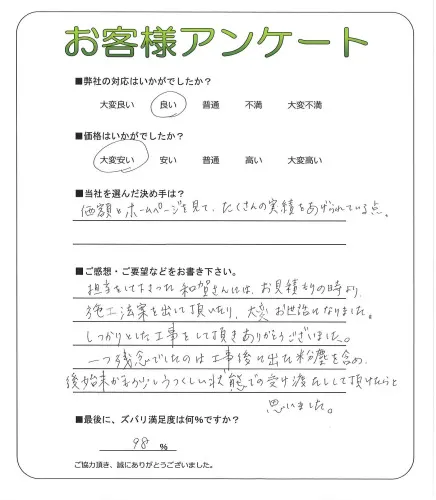 お客様アンケート
■弊社の対応はいかがでしたか?
大変良い 良い 普通 不満 大変不満
■価格はいかがでしたか?
大変安い 安い 普通 高い 大変高い
■当社を選んだ決め手は?
価額とホームページを見て、たくさんの実績をあげられている点。
■ご感想・ご要望などをお書き下さい。
担当をして下さった和賀さんには、お見積もりの時より、
施工法案を出して頂いたり、大変お世話になりました。
しっかりとした工事をして頂きありがとうございました。
一つ残念でしたのは工事後に出た粉塵を含め、
後始末がもう少しうつくしい状態での受け渡しして頂けたらと
思いました。
■最後に、ズバリ満足度は何%ですか?
98 %
ご協力頂き、誠にありがとうございました。